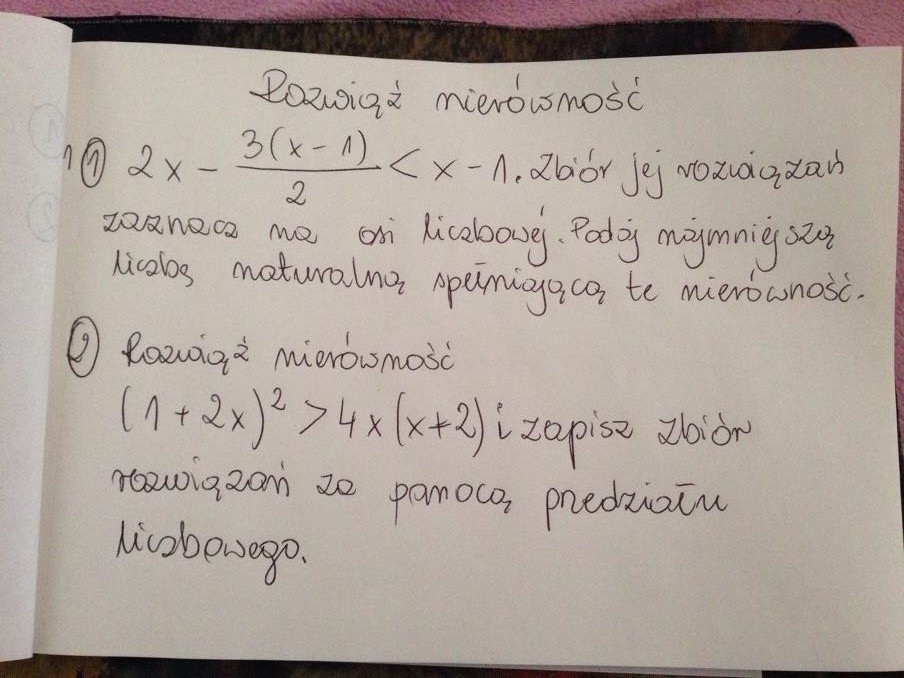 Rozwiąż nierówność
1) 2x - \frac{3(x-1)}{2} < x - 1. Zbiór jej rozwiązań
zaznacz na osi liczbowej. Podaj najmniejszą
liczbę naturalną spełniającą te nierówność.
2) Rozwiąż nierówność
(1 + 2x)² > 4x(x+2) i zapisz zbiór
rozwiązań za pomocą przedziału
liczbowego.